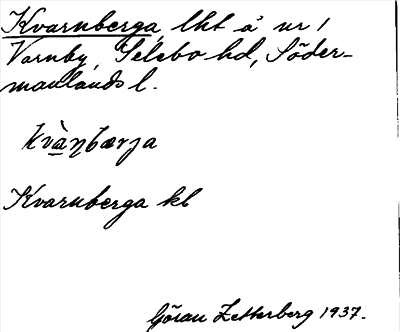 Kvarnberga lht å ur 1
Varnby, Selebo hd, Söder-
manlands l.
kvànbærja
Kvarnberga kl
Göran Zetterberg 1937.